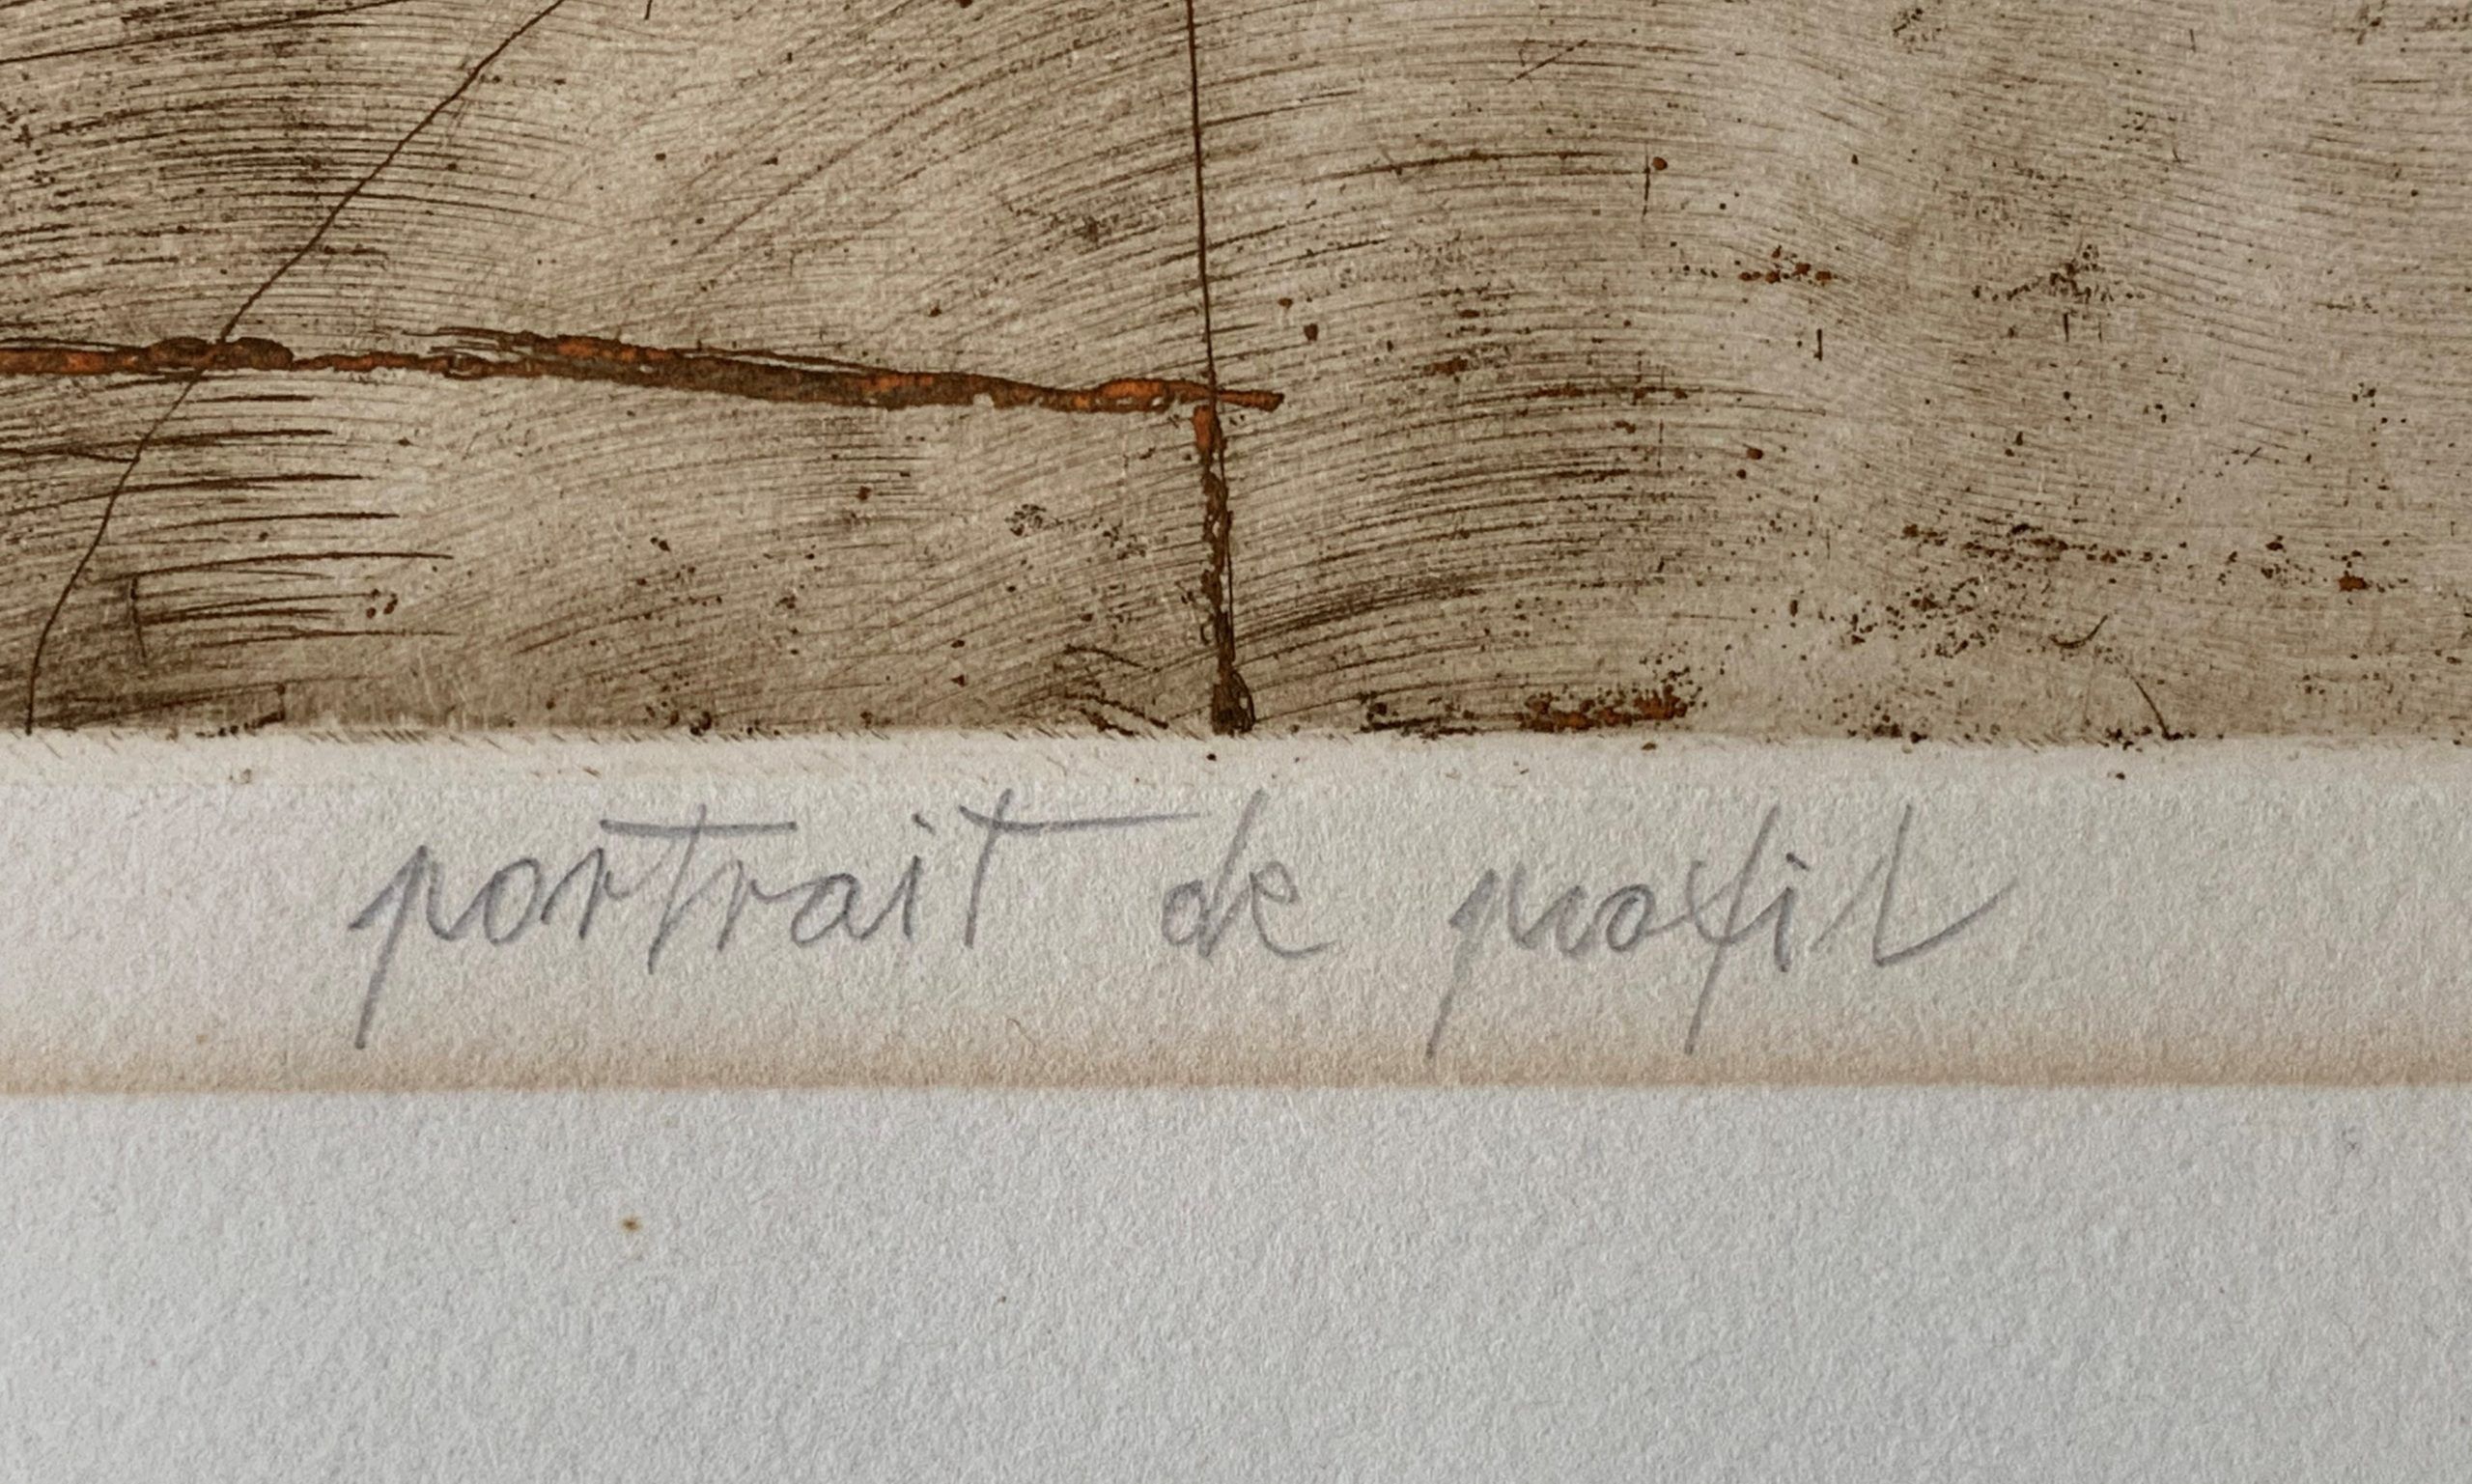 portrait de profil